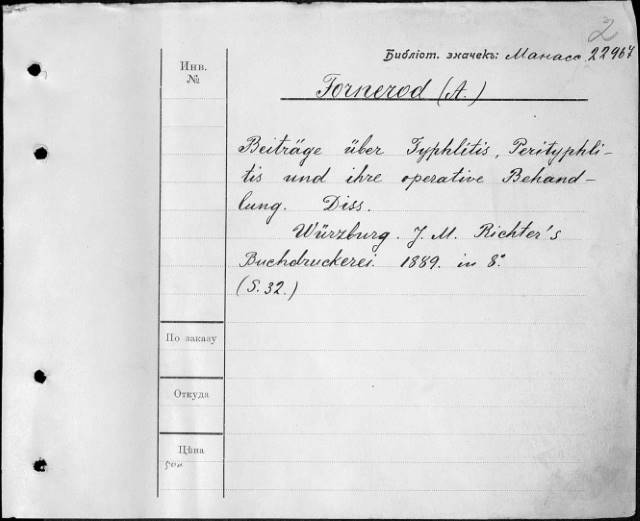 2
Библіот. значекъ: Манасс. 22967
Инв.
№
Fornerod (A.)
Beiträge über Typhlitis, Perityphli-
tis und ihre operative Behand-
lung. Diss.
Würzburg. J. M. Richter's
Buchdruckerei. 1889. in 8.°
(S. 32.)
По заказу
Откуда
Цѣна